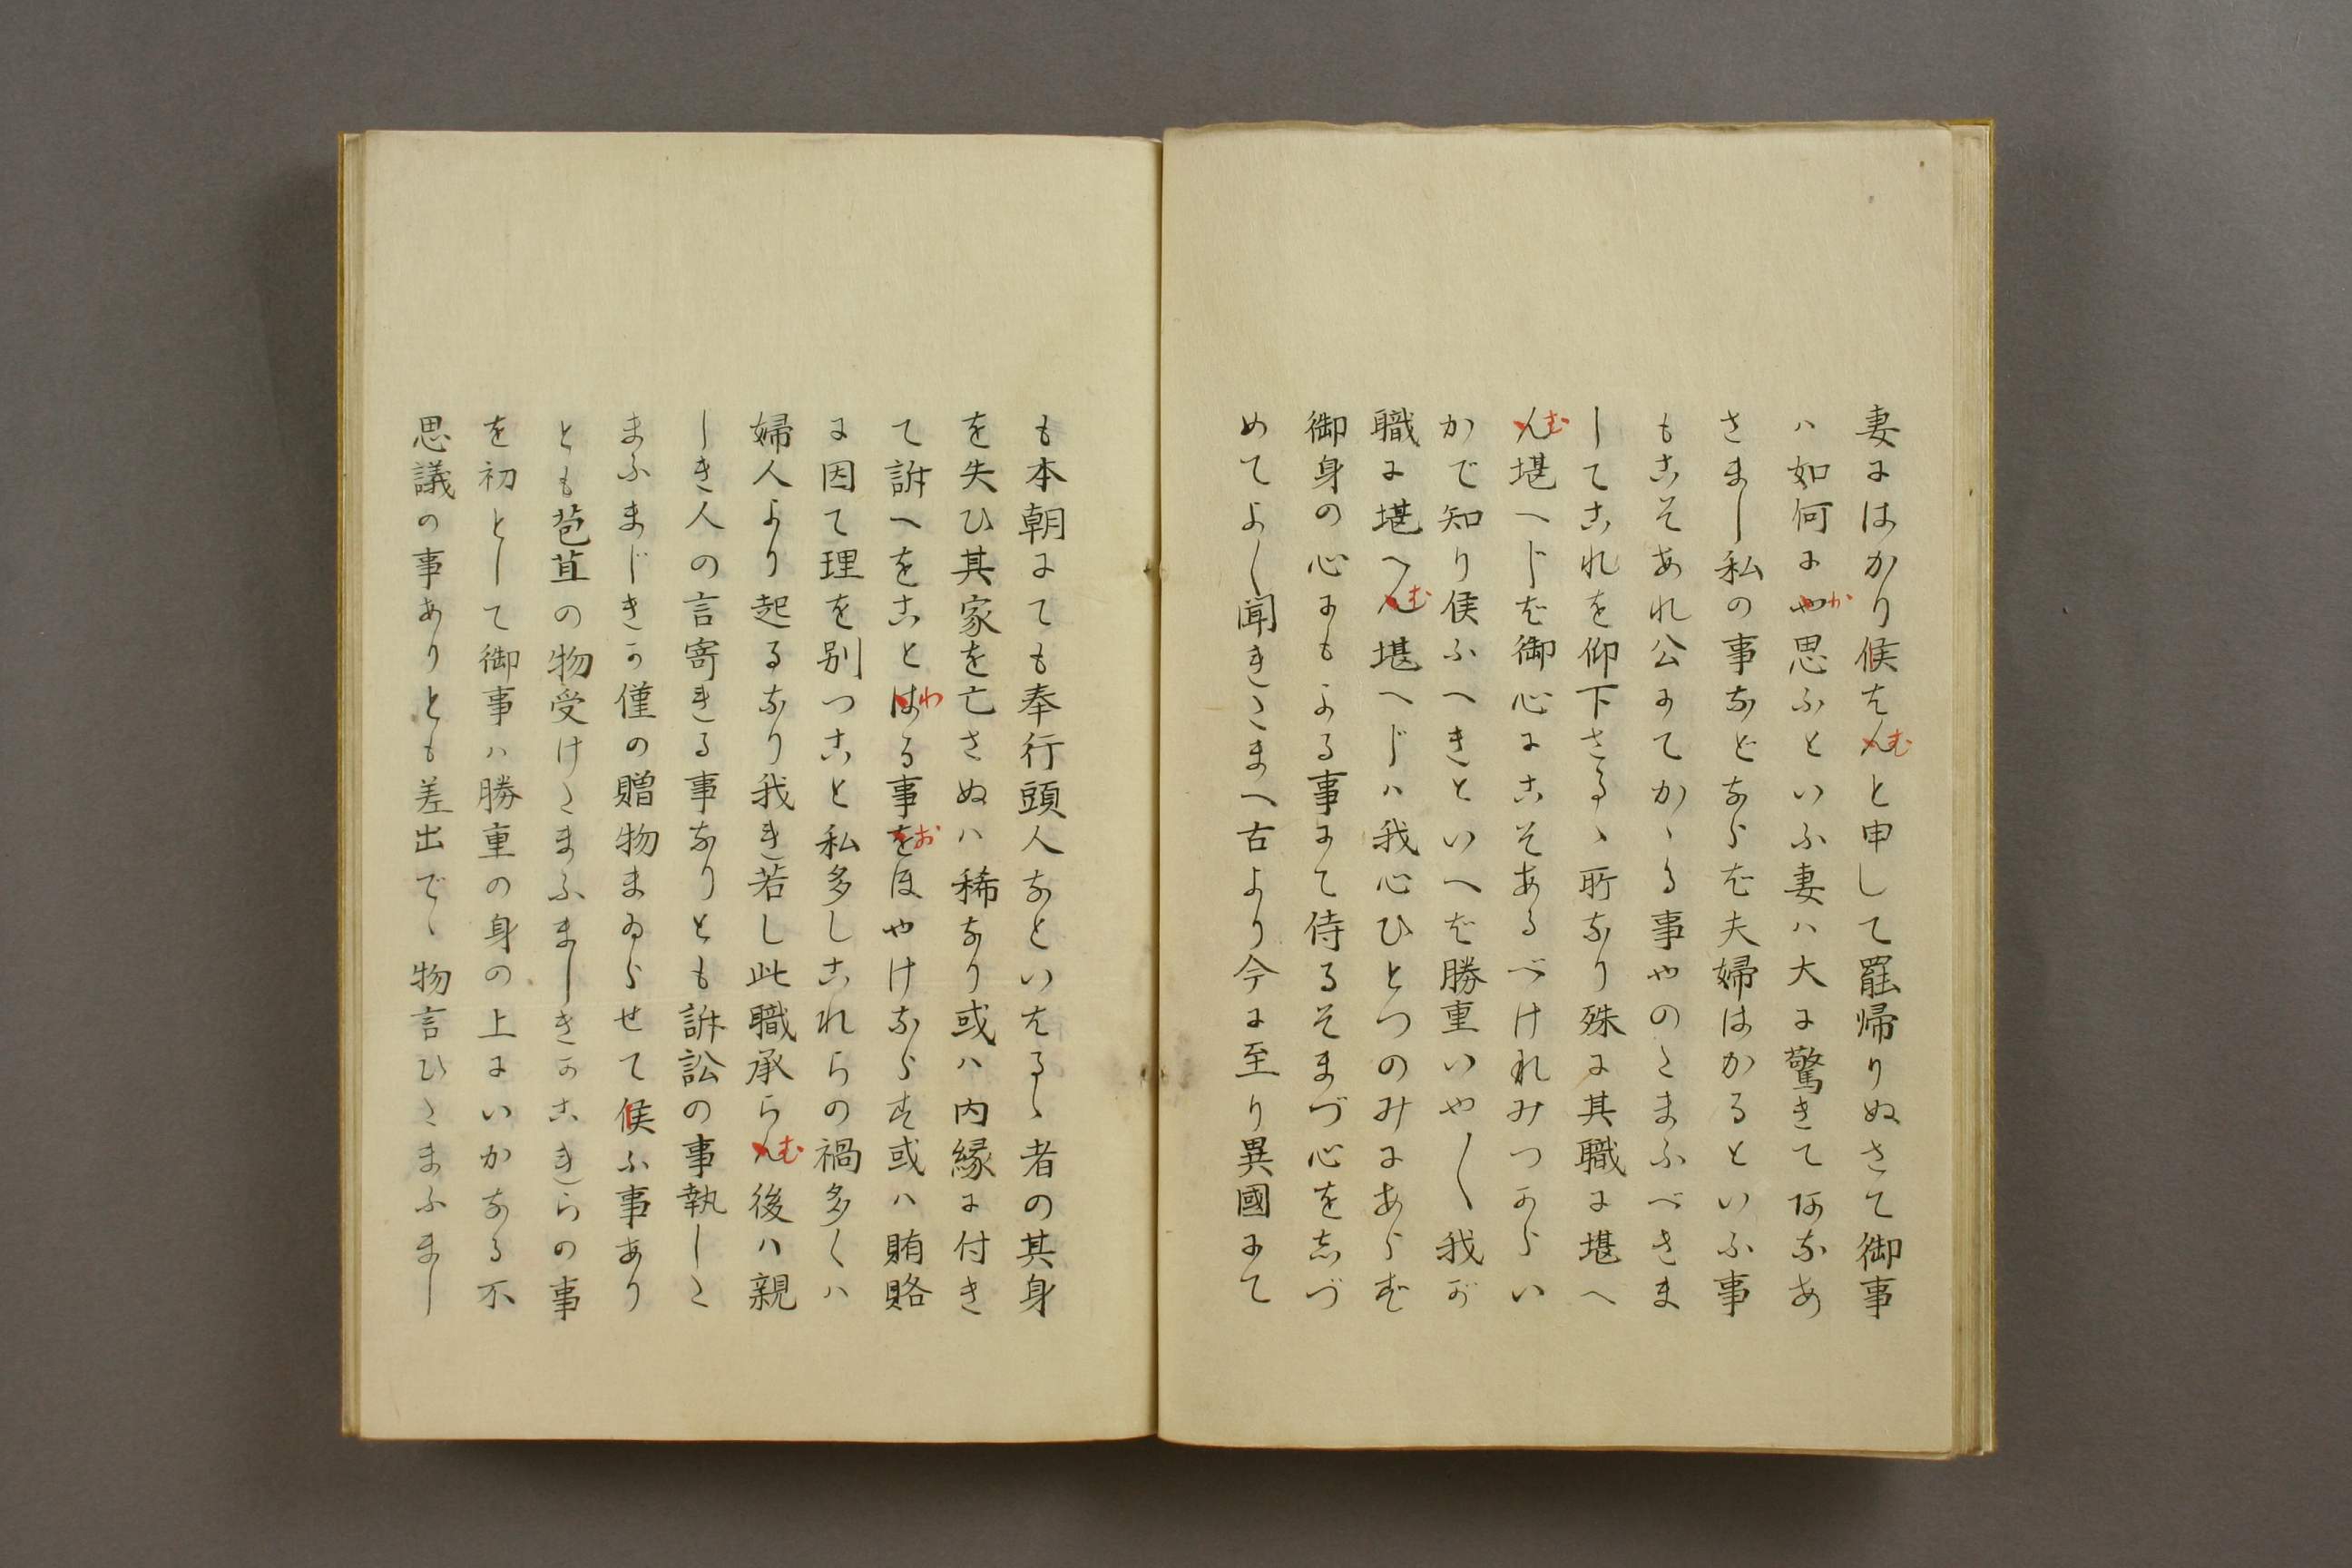 妻にはかり候はんむと申して罷帰りぬさて御事
ハ如何にやか思ふといふ妻ハ大に驚きて阿なあ
さまし私の事などならば夫婦はかるといふ事
もこそあれ公にてかゝる事やのたまふべきま
してこれを仰下さるゝ所なり殊に其職に堪へ
んむ堪へじば御心にこそあるべけれみつからい
かで知り候ふへきといへば勝重いや〳〵我が
職に堪へんむ堪へじハ我心ひとつのみにあらず
御身の心にもよる事にて侍るそまづ心をしづ
めてよく聞きたまへ古より今に至り異國にて
も本朝にても奉行頭人なといはるゝ者の其身
を失ひ其家を亡さぬハ稀なり或ハ内縁に付き
て訴へをことはわる事をおほやけならす或ハ賄賂
に因て理を別つこと私多しこれらの禍多くハ
婦人より起るなり我れ若し此職承らんむ後ハ親
しき人の言寄れる事なりとも訴訟の事執した
まふまじきか僅の贈物まゐらせて候ふ事あり
とも苞苴の物受けたまふましきかこれらの事
を初として御事ハ勝重の身の上にいかなる不
思議の事ありとも差出でゝ物言ひたまふまし